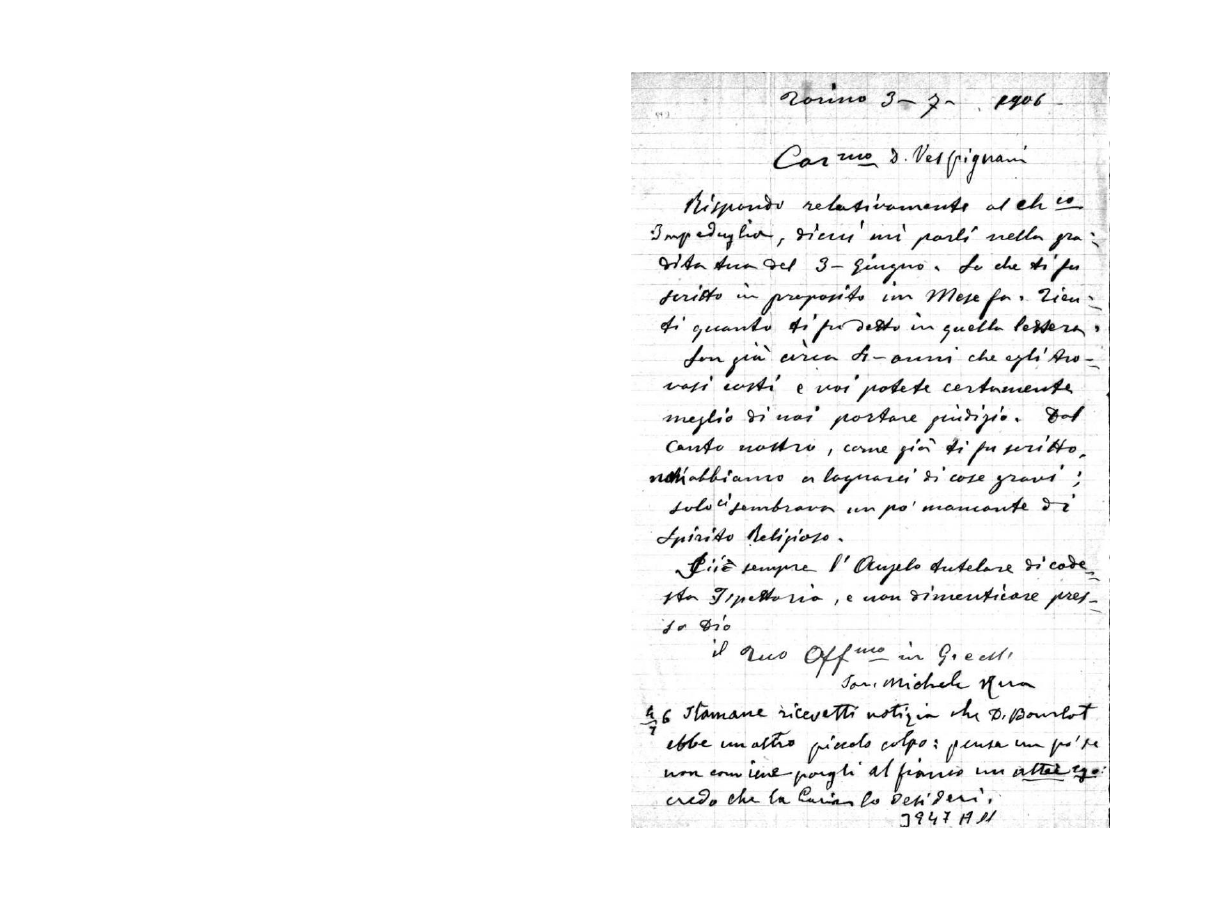 Torino 3 - 7 - 1906
Car mo D. Vespignani
Rispondo relativamente al ch co
Impeduglia, di cui mi parli nella gra:
dita tua del 3 - Giugno. So che ti fu
scritto in proposito un Mese fa. Tien-
ti quanto ti fu detto in quella lettera.
Son già circa anni che egli tro-
vasi costì e voi potete certamente
meglio di noi portare giudizio. Dal
canto nostro, come già ti fu scritto,
abbiamo a lagnarci di cose gravi;
solo ci sembrava un po' mancante di
Spirito Religioso.
sempre l'Angelo tutelare di code-
sta Ispettoria, e non dimenticare pres-
so Dio
il Tuo Aff mo in G. e
Sac. Michele Rua
4/7 6 Stamane ricevetti notizia che D. Bourlot
ebbe un altro piccolo colpo: pensa un po' se
non conviene porgli al fianco un alter ego:
credo che la Curia lo desideri.
3947